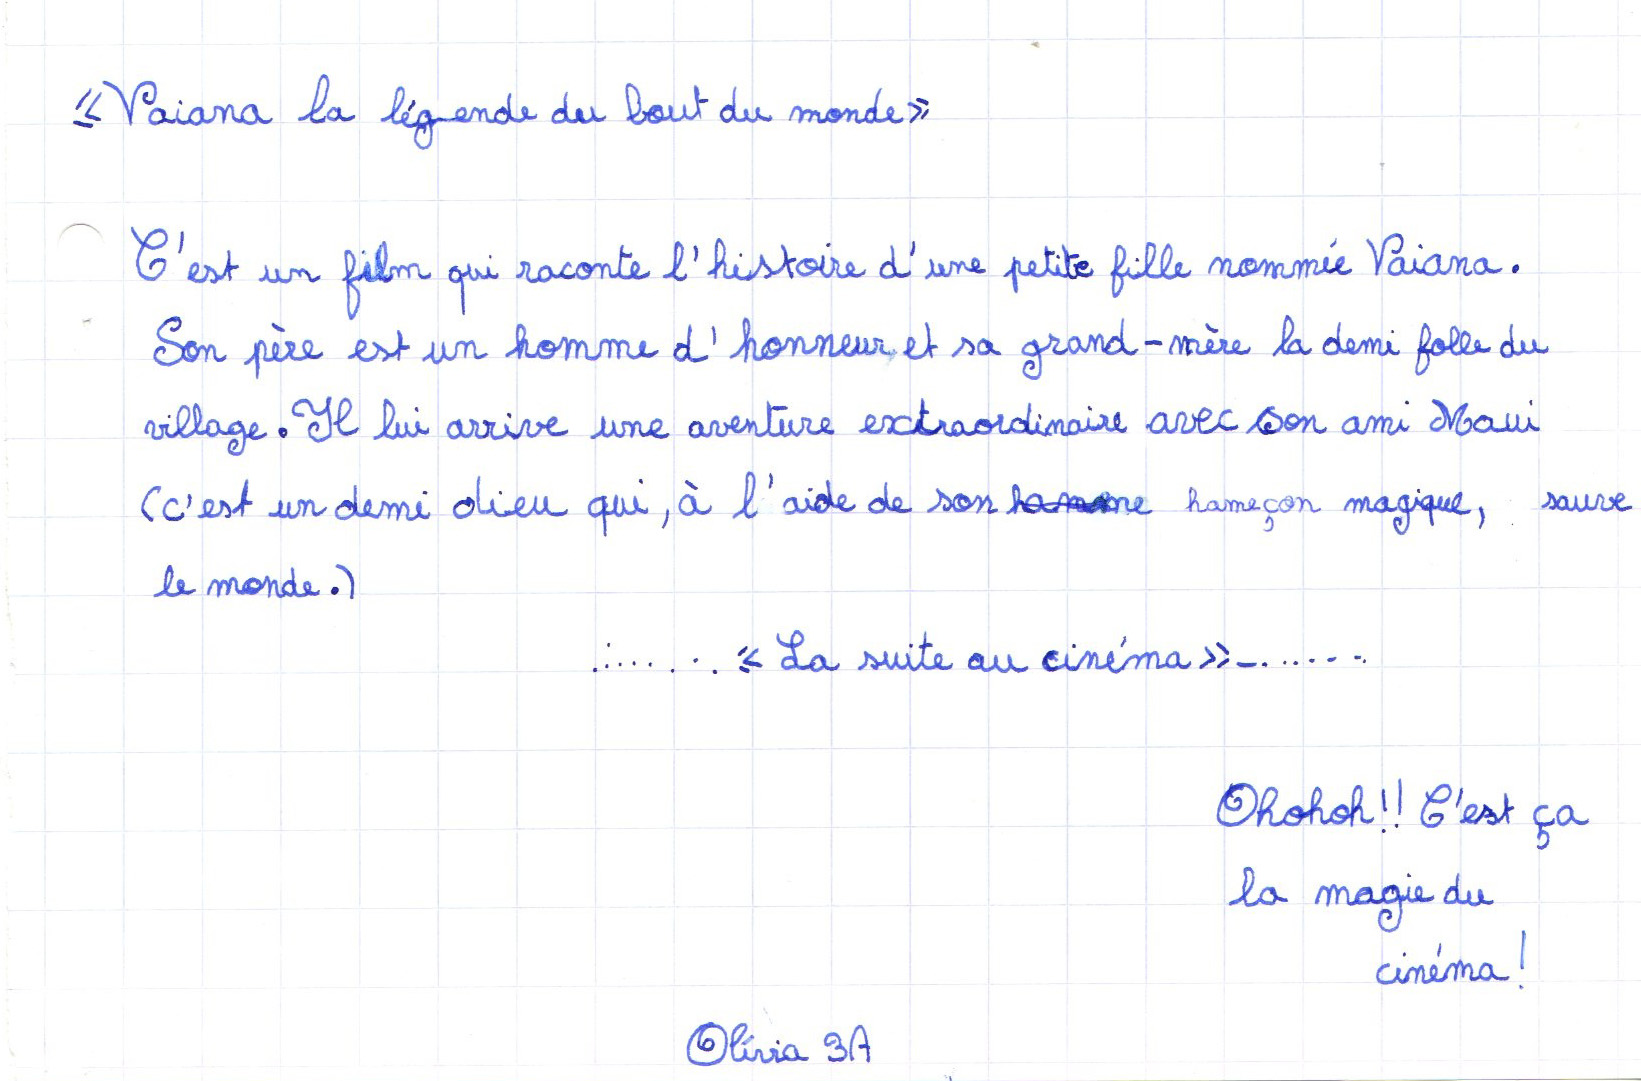 «Vaiana la légende du bout du monde»
C'est un film qui raconte l'histoire d'une petite fille nommée Vaiana.
Son père est un homme d'honneur et sa grand-mère la demi folle du
village. Il lui arrive une aventure extraordinaire avec son ami Maui
(c'est un demi dieu qui, à l'aide de son hameçon magique, sauve
le monde.)
......... «La suite au cinéma» .........
Ohohoh!! C'est ça
la magie du
cinéma!
Olivia 3A